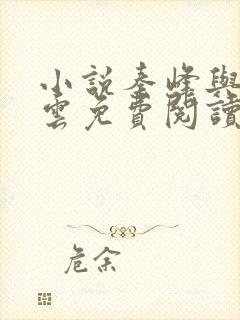 小說秦峰與
雲免費閱讀
危余